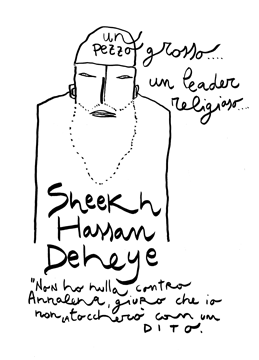 un
pezzo grosso....
un leader
religioso...
Sheekh
Hassan
Deheye
"Non ho nulla contro
Annalena, giuro che io
non la toccherò con un
DITO.